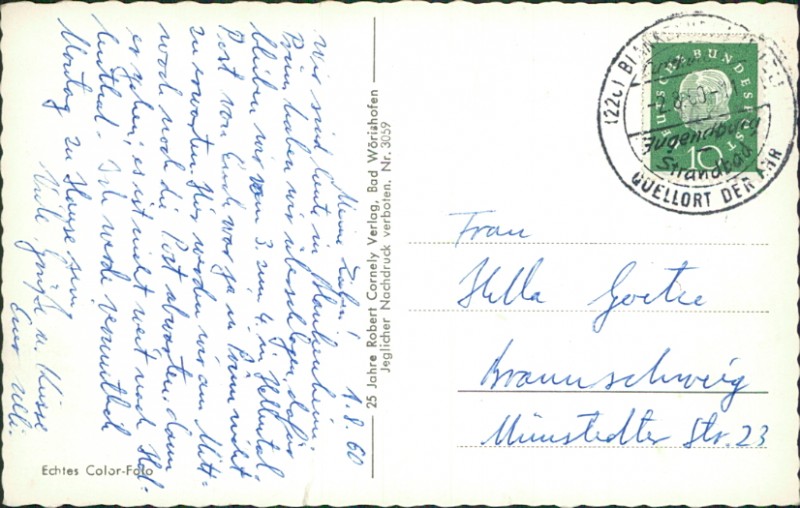 1.8.60
Meine Lieben!
Wir sind heute in Blankenheim.
Prüm haben wir überschlagen, dafür
bleiben wir vom 3. zum 4. in Hellental.
Post von Euch war ja in Prüm nicht
zu erwarten. Hier werden wir am Mitt-
woch noch die Post abwarten, dann
gehen, es ist nicht weit nach Hel-
lenthal. Ich werde vermutlich
Montag zu Hause sein.
Viele Grüße u. Küsse
Eure Ulli.
Echtes Color-Foto
25 Jahre Robert Cornely Verlag, Bad Wörishofen
Jeglicher Nachdruck verboten. Nr. 3059
DEUTSCHE BUNDESPOST
10
(22c)
-2.8.60
Jugendburg
Strandbad
QUELLORT DER AHR
Frau
Hella Goetze
Braunschweig
Münstedter Str. 23